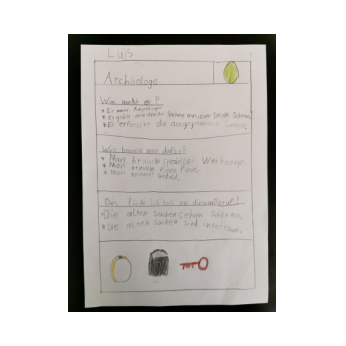 Luis
Archäologe
Was macht er?
* Er
* Er gräbt alte Sachen aus
* Er erforscht die ausgegrabenen Sachen.
Was braucht man dafür?
* Man braucht spezielle Werkzeuge.
* Man braucht einen Pinsel.
* Man braucht Geduld.
Das finde ich toll an diesem Beruf!
* Die alten Sachen sehen schön aus.
* Die alten Sachen sind interessant.